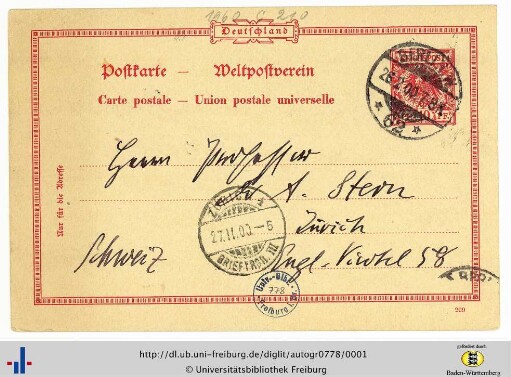 1960 C 210
Deutschland
Postkarte — Weltpostverein
Carte postale — Union postale universelle
Nur für die Adresse
Herrn Professor
A. Stern
Zürich
Schweiz
Engl. Viertel 58
BERLIN
26 00 7-8
62
ZÜRICH 1
27.II.00.–6
BRIEFTRÄG III
Univ.-Bibl.
778
Freiburg i.
209
http://dl.ub.uni-freiburg.de/diglit/autogr0778/0001
© Universitätsbibliothek Freiburg
gefördert durch
Baden-Württemberg